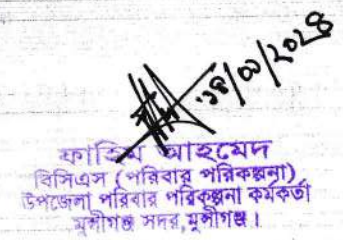 ১৪/০৩/২০২৪
ফাহিম আহমেদ
বিসিএস (পরিবার পরিকল্পনা)
উপজেলা পরিবার পরিকল্পনা কর্মকর্তা
মুন্সীগঞ্জ সদর, মুন্সীগঞ্জ।